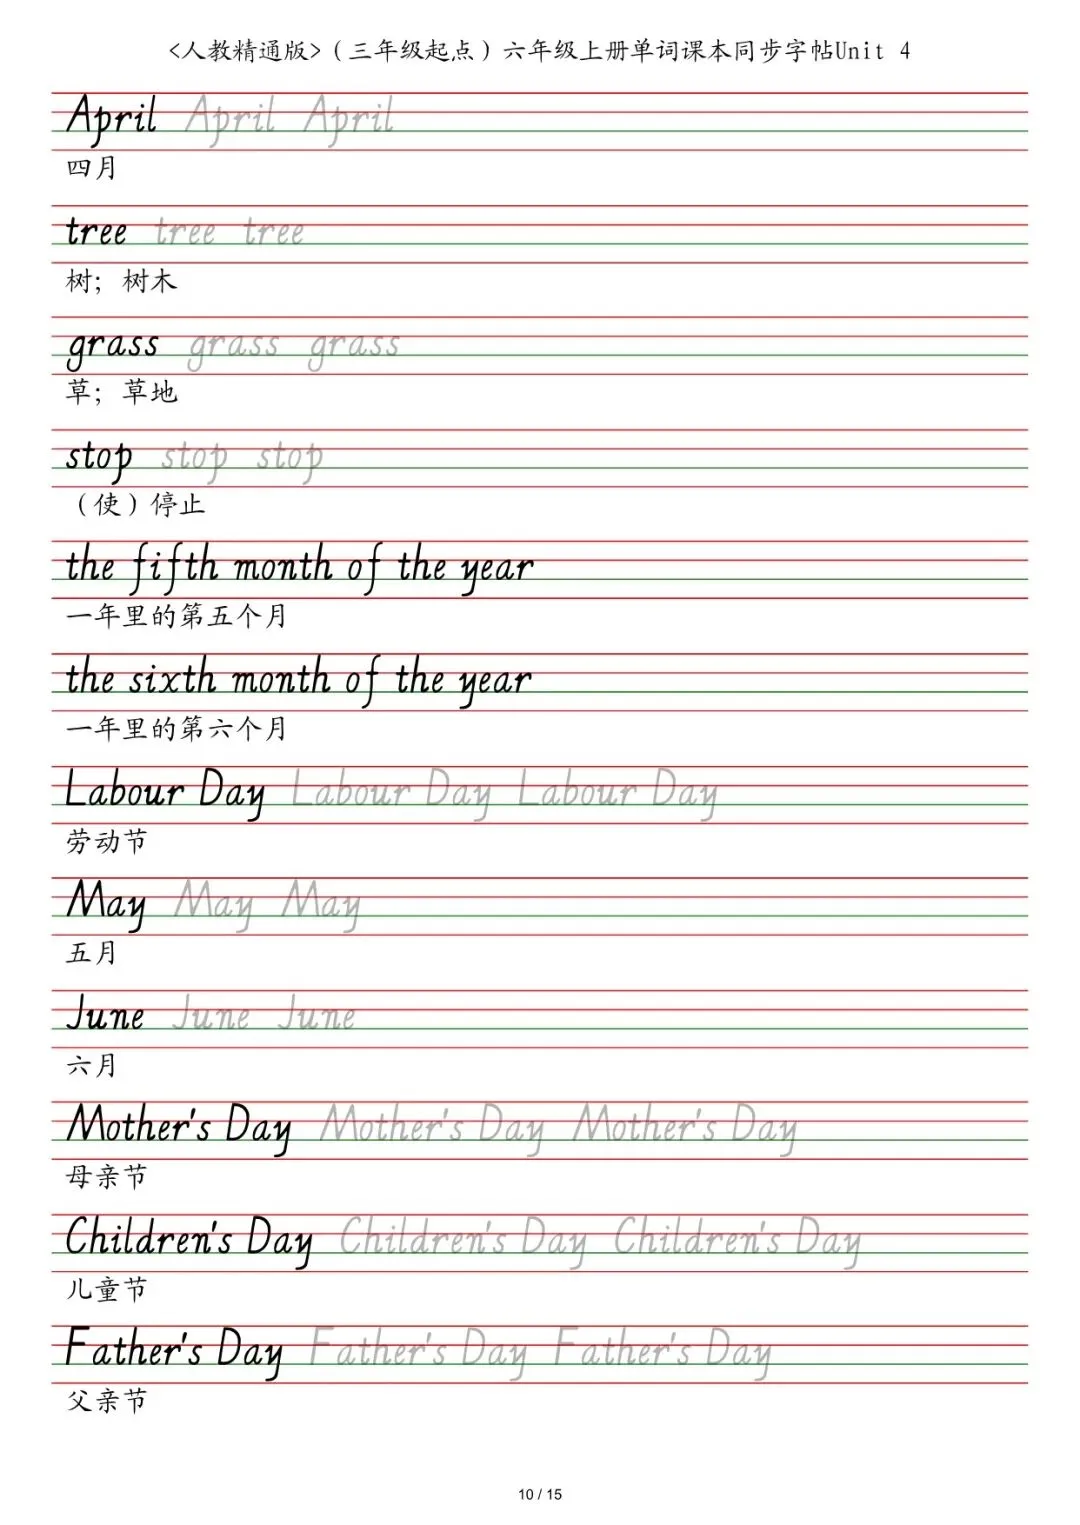 <人教精通版>（三年级起点）六年级上册单词课本同步字帖Unit 4
April April April
四月
tree tree tree
树；树木
grass grass grass
草；草地
stop stop stop
（使）停止
the fifth month of the year
一年里的第五个月
the sixth month of the year
一年里的第六个月
Labour Day Labour Day Labour Day
劳动节
May May May
五月
June June June
六月
Mother's Day Mother's Day Mother's Day
母亲节
Children's Day Children's Day Children's Day
儿童节
Father's Day Father's Day Father's Day
父亲节
10 / 15